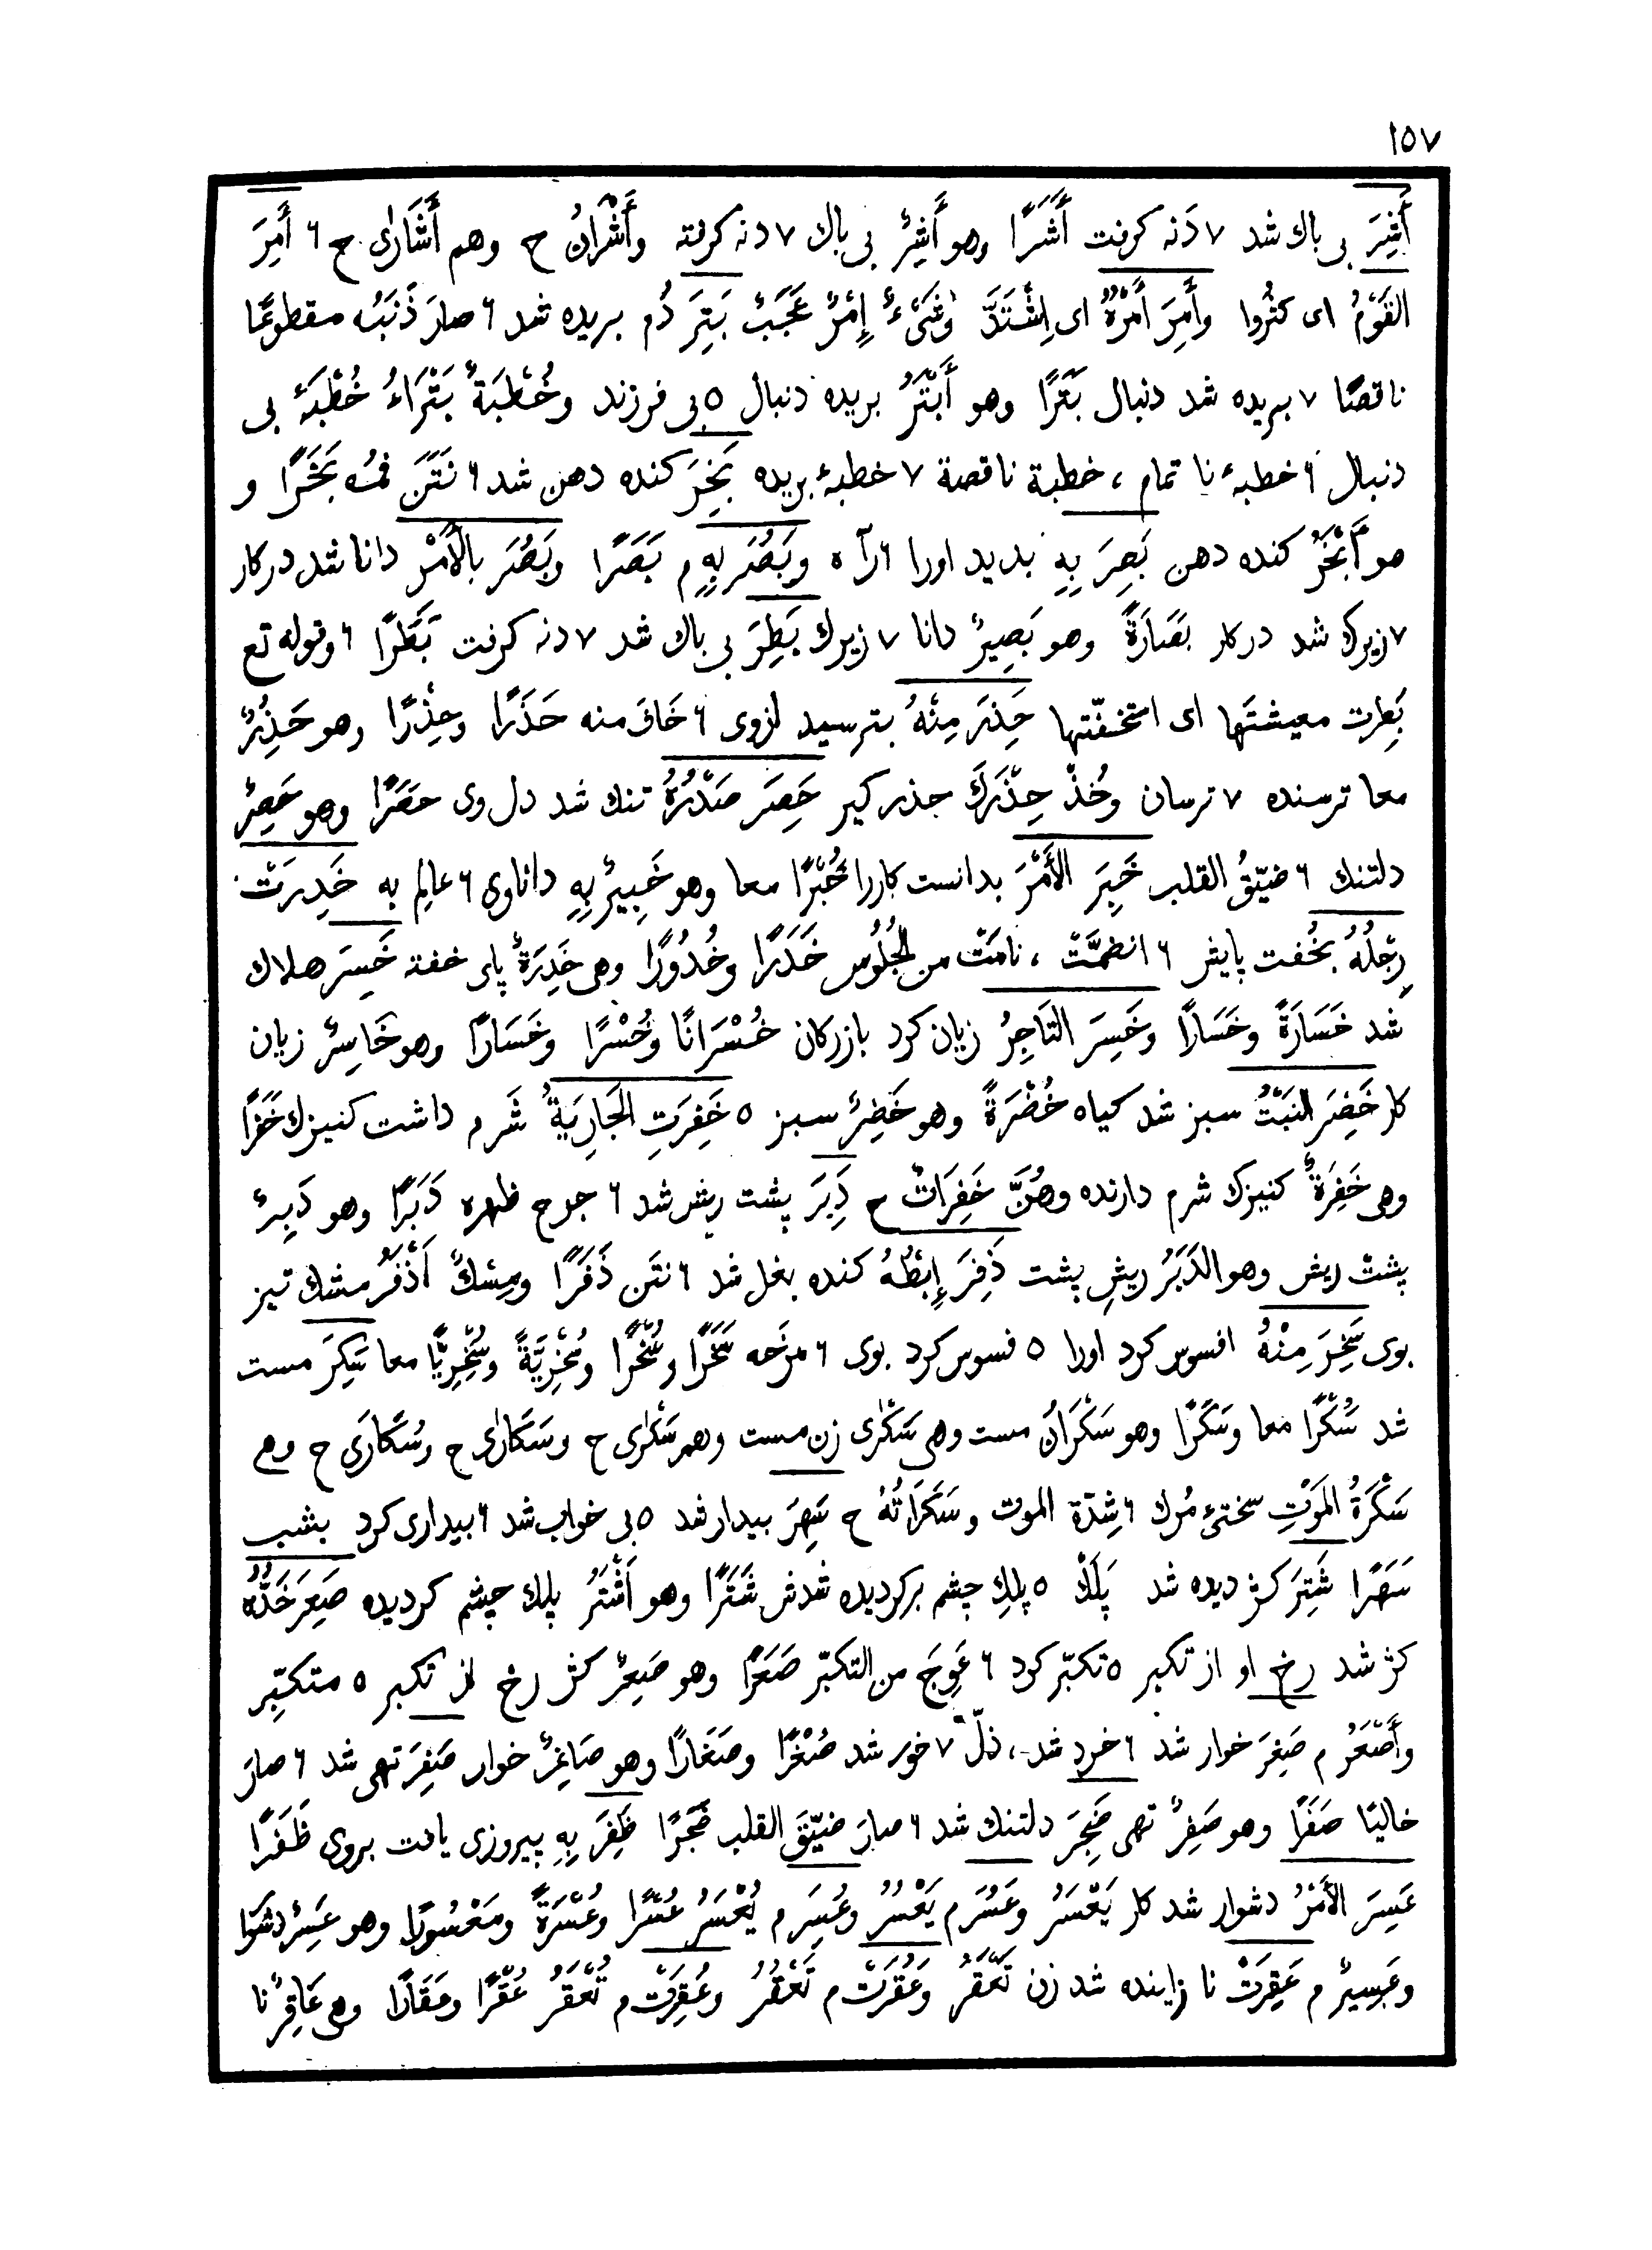 ١٥٧
أَشِرَ بى باك شد ٧ دَنه كرفت أَشَرًا وهو أَشِرٌ بى باك ٧ دنه كرفته وأَشْرَانُ ح وهم أَشَارٰى ح ٦ أَمِرَ
القَوْمُ اى كثُروا وأَمِرَ أَمْرُهُ اى اِشْتَدَّ وشَىْءٌ إِمْرٌ عَجَبٌ بَتِرَ دُم بريده شد ٦ صارَ ذَنَبُه مقطوعًا
ناقصًا ٧ بريده شد دنبال بَتَرًا وهو أَبْتَرُ بريده دنبال ٥ بى فرزند وخُطْبَةٌ بَتْرَاءُ خُطْبَهٔ بى
دنبال ٦ خطبهٔ نا تمام ، خطبة ناقصة ٧ خطبهٔ بريده بَخِرَ كنده دهن شد ٦ نَتَنَ فمُه بَخَرًا و
هو أَبْخَرُ كنده دهن بَصِرَ بِهِ بديد اورا ٦ رآه وبَصُرَ بِهِ م بَصَرًا وبَصُرَ بالأَمْرِ دانا شد دركار
٧ زيرك شد دركار بَصَارَةً وهو بَصِيرٌ دانا ٧ زيرك بَطِرَ بى باك شد ٧ دنه كرفت بَطَرًا ٦ وقوله تع
بَطِرت معيشتَها اى استخفّتها حَذِرَ مِنْهُ بترسيد ازوى ٦ خَافَ منه حَذَرًا وحِذْرًا وهو حَذِرٌ
معا ترسنده ٧ ترسان وخُذْ حِذْرَكَ حذر كير حَصِرَ صَدْرُهُ تنك شد دل وى حَصَرًا وهو حَصِرٌ
دلتنك ٦ ضيّقُ القلب خَبِرَ الأَمْرَ بدانست كاررا خُبْرًا معا وهو خَبِيرٌ بِهِ داناوى ٦ عالِم به خَدِرَتْ
رِجْلُهُ بخُفت پايش ٦ انضمَّتْ ، نامَتْ من الجُلُوس خَدَرًا وخُدُورًا وهى خَدِرَةٌ پاى خفته خَسِرَ هلاك
شد خَسَارَةً وخَسَارًا وخَسِرَ التَاجِرُ زيان كرد بازركان خُسْرَانًا وخُسْرًا وخَسَارًا وهو خَاسِرٌ زيان
كار خَضِرَ النَبْتُ سبز شد كياه خُضْرَةً وهو خَضِرٌ سبز ٥ خَفِرَتِ الجَارِيَةُ شَرم داشت كنيزك خَفَرًا
وهى خَفِرَةٌ كنيزك شرم دارنده وهُنَّ خَفِرَاتٌ ح دَبِرَ پشت ريش شد ٦ جرح ظهره دَبَرًا وهو دَبِرٌ
پشت ريش وهو الدَبَرُ ريشِ پشت ذَفِرَ إِبْطُهُ كنده بغل شد ٦ نتَن ذَفَرًا ومِسْكٌ اَذْفَرُ مشك تيز
بوى سَخِرَ مِنْهُ افسوس كرد اورا ٥ فسوس كرد بوى ٦ مزَحه سَخَرًا وسُخْرًا وسُخْرِيَّةً وسُخْرِيًّا معا سَكِرَ مست
شد سُكْرًا معا وسَكَرًا وهو سَكْرَانُ مست وهى سَكْرٰى زن مست وهم سَكْرٰى ح وسَكَارٰى ح وسُكَارَى ح وهى
سَكْرَةُ المَوْتِ سختئ مرك ٦ شِدّة الموت وسَكَرَاتُهُ ح سَهِرَ بيدار شد ٥ بى خواب شد ٦ بيدارى كرد بشب
سَهَرًا شَتِرَ كژ ديده شد پَلَكْ ٥ پلكِ چشم بركرديده شدش شَتَرًا وهو اَشْتَرُ پلك چشم كرديده صَعِرَ خَدُّهُ
كژ شد رخ او از تكبر ٥ تكبّر كرد ٦ عَوِجَ من التكبّر صَعَرًا وهو صَعِرٌ كژ رخ از تكبر ٥ متكبِّر
وأَصْعَرُ م صَغِرَ خوار شد ٦ خرد شد ، ذلّ ٧ خور شد صُغْرًا وصَغَارًا وهو صَاغِرٌ خوار صَفِرَ تهى شد ٦ صارَ
خاليًا صَفَرًا وهو صَفِرٌ تهى ضَجِرَ دلتنك شد ٦ صارَ ضيّقَ القلب ضَجَرًا ظَفِرَ بِهِ پيروزى يافت بروى ظَفَرًا
عَسِرَ الأَمْرُ دشوار شد كار يَعْسَرُ وعَسُرَ م يَعْسُرُ وعُسِرَ م يُعْسَرُ عُسْرًا وعُسْرَةً ومَعْسُورًا وهو عَسِرٌ دشوا
وعَسِيرٌ م عَقِرَتْ نا زاينده شد زن تَعْقَرُ وعَقُرَتْ م تَعْقُرُ وعُقِرَتْ م تُعْقَرُ عُقْرًا وعَقَارًا وهى عَاقِرٌ نا